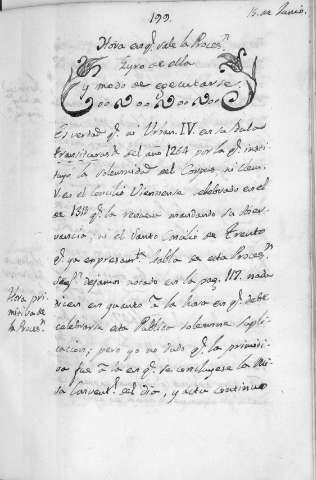 199.
15. de Junio.
Hora en q.e sale la Proces.n
Gyro de ella
y modo de egecutarse.
Es verdad q.e ni Urban. IV. en su Bula
Transiturus del año 1264 por la q.e insti-
tuyo la solemnidad del Corpus, ni Clem.
V. en el Concilio Viennense celebrado en el
de 1313 q.e la renueva mandando su obser-
vancia, ni el Santo Concilio de Trento
q.e ya expresam.te habla de esta Proces.n
seg.n dejamos notado en la pag. 117. nada
dicen en quanto a la hora en q.e debe
celebrarse esta Publica solemne supli-
cacion; pero yo no dudo q.e la primiti-
va fue a la en q.e se concluyese la Mi-
sa Convent.l del dia, y acto continuo
Hora pri-
mitiva de
la Proces.n